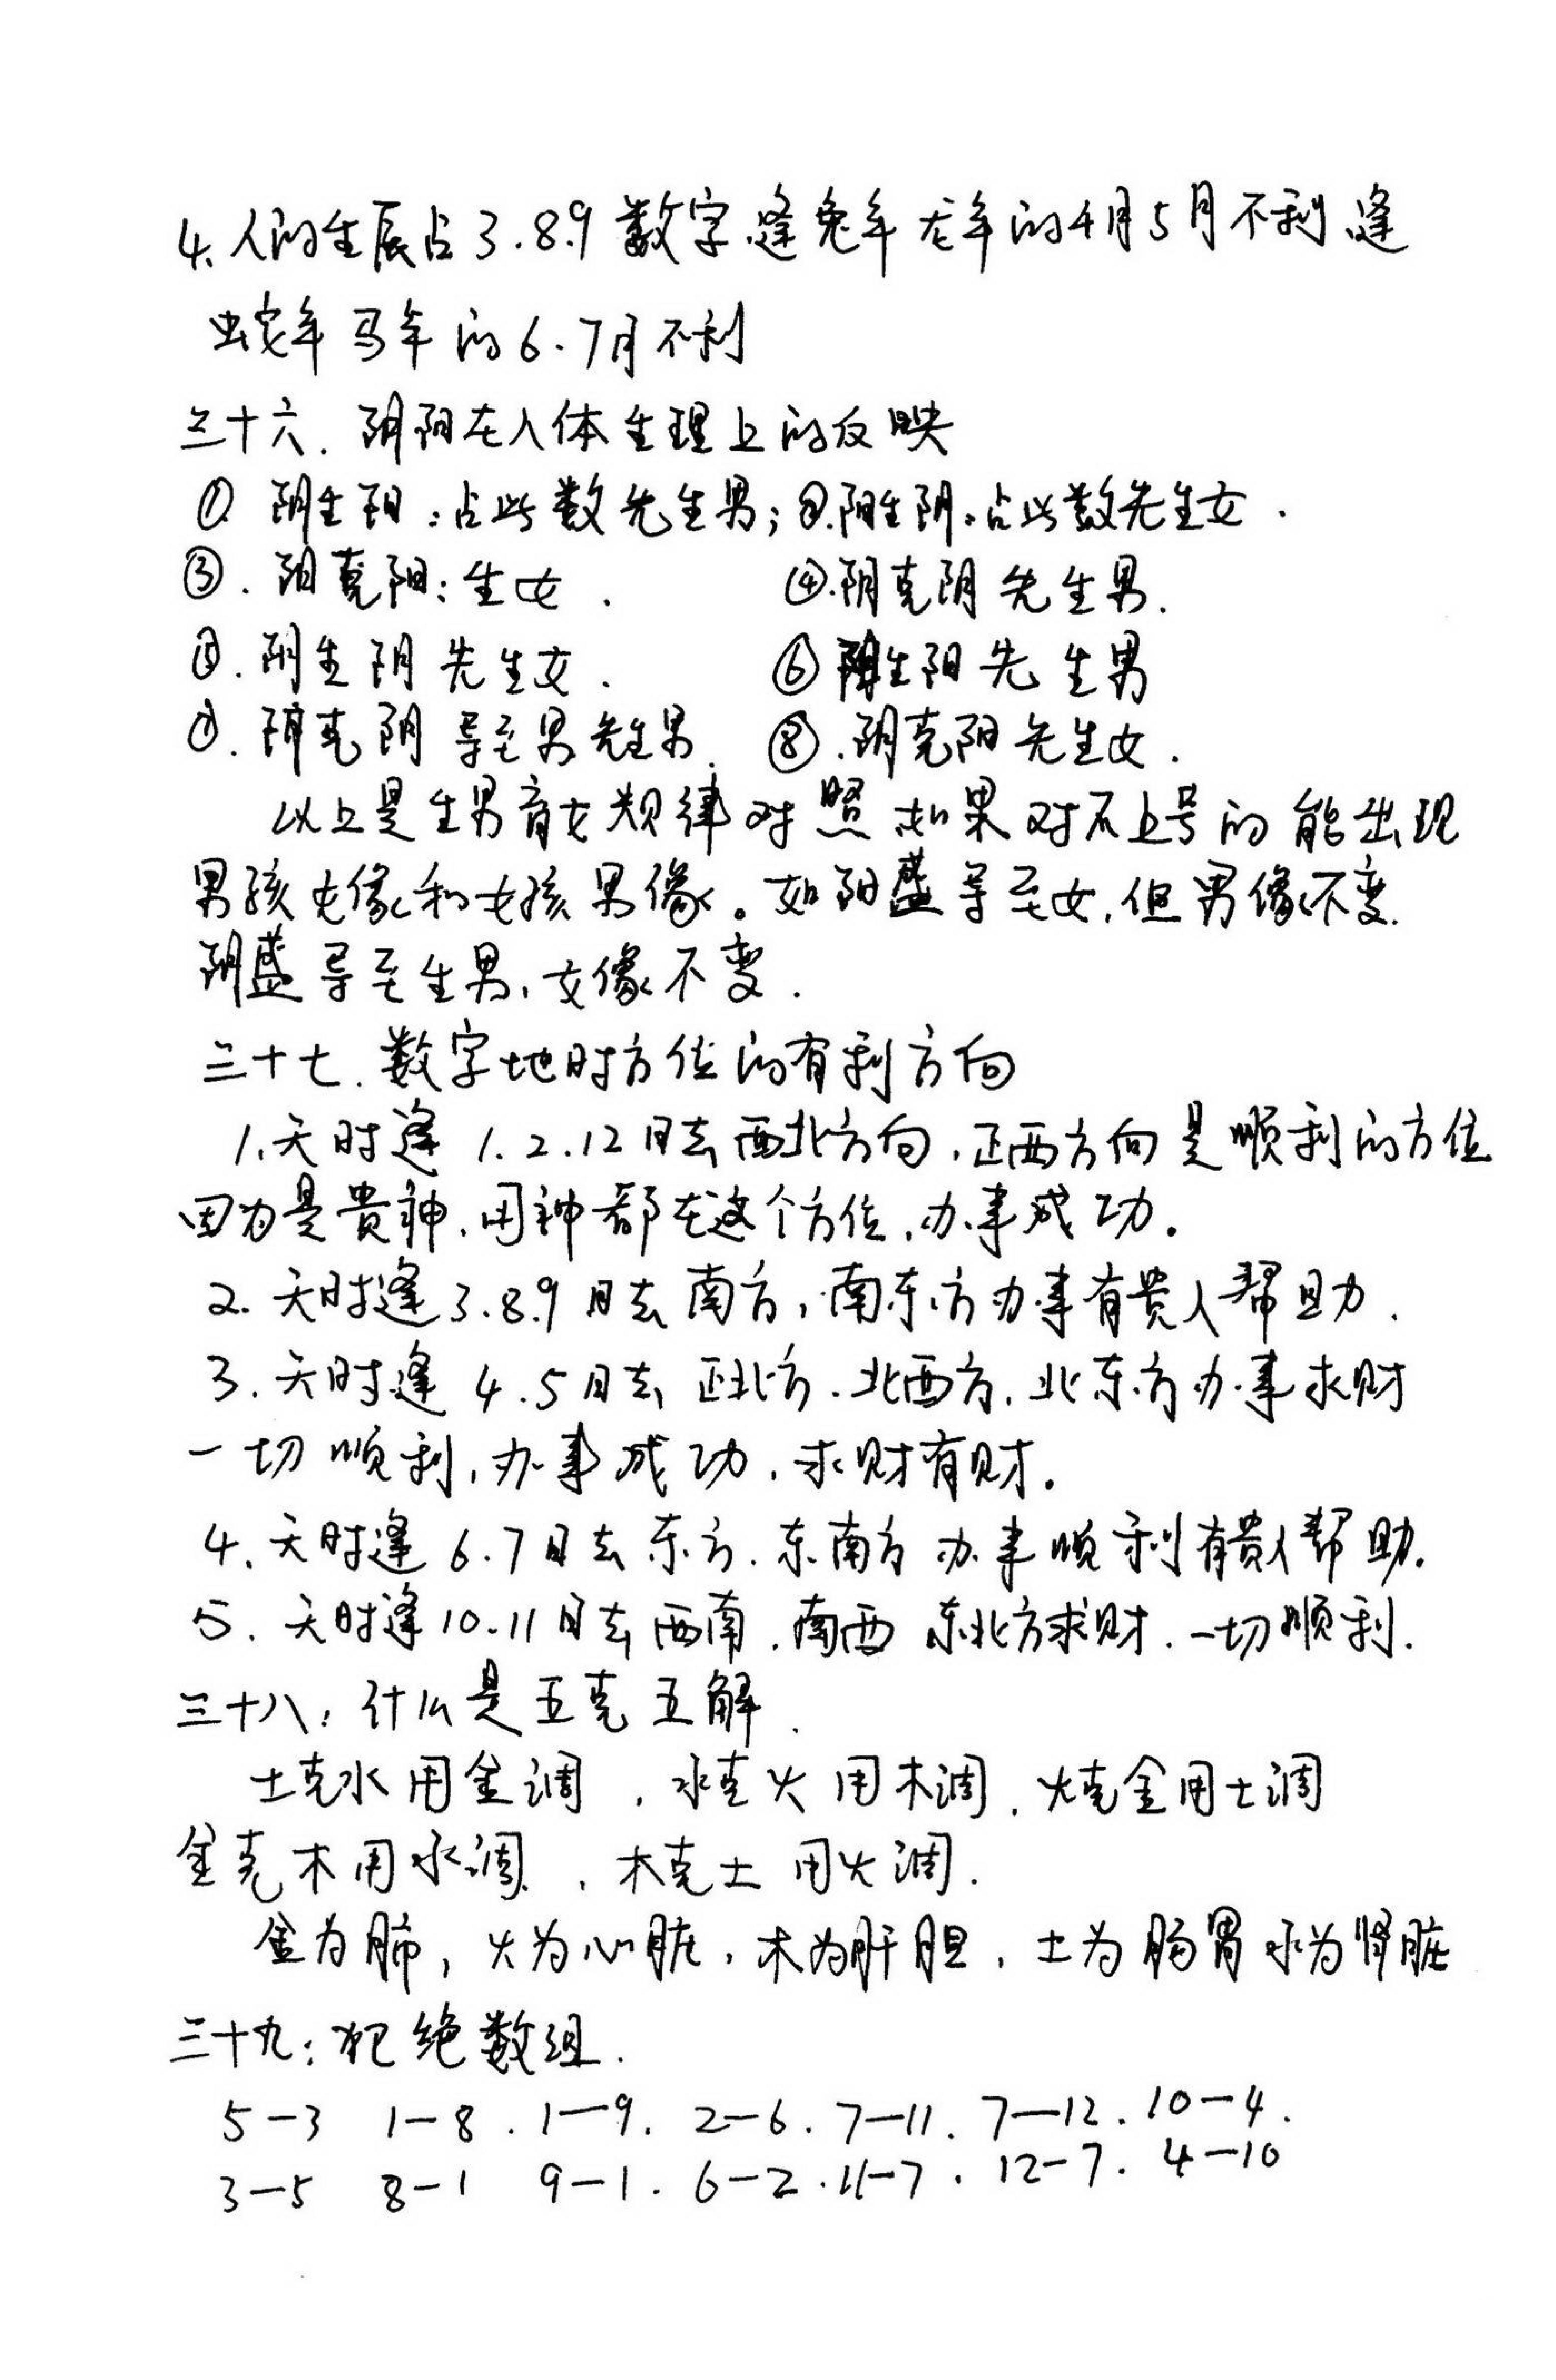 4、人的生辰占3.8.9数字.逢兔年龙年的4月5月不利.逢
蛇年马年的6.7月不利
三十六.阴阳在人体生理上的反映
①.阴生阳:占此数先生男;②.阳生阴.占此数先生女.
③.阳克阳:生女. ④.阴克阴先生男.
⑤.阴生阴先生女. ⑥阳生阳先生男
⑦.阳克阴导至男先生男. ⑧.阴克阳先生女.
以上是生男育女规律对照如果对不上号的能出现
男孩女像和女孩男像。如阳盛导至女,但男像不变.
阴盛导至生男,女像不变.
三十七.数字地时方位的有利方向
1.天时逢1.2.12月去西北方向,正西方向是顺利的方位
因为是贵神,用神都在这个方位,办事成功。
2.天时逢3.8.9月去南方,南东方办事有贵人帮助.
3.天时逢4.5月去正北方.北西方,北东方办事求财
一切顺利,办事成功,求财有财。
4.天时逢6.7月去东方.东南方办事顺利有贵人帮助.
5.天时逢10.11月去西南.南西 东北方求财.一切顺利.
三十八:什么是五克五解.
土克水用金调,水克火用木调.火克金用土调
金克木用水调.,木克土用火调.
金为肺,火为心脏,木为肝胆,土为肠胃水为肾脏
三十九:犯绝数组.
5-3 1-8.1-9.2-6.7-11.7-12.10-4.
3-5 8-1 9-1.6-2.11-7.12-7.4-10